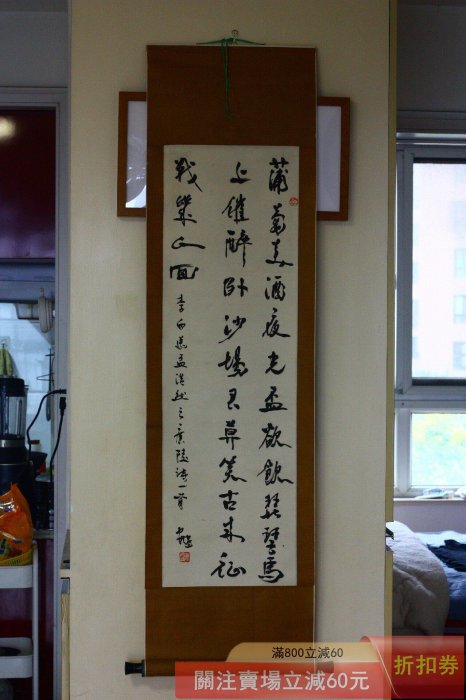 蒲萄美酒夜光盃欲飲琵琶馬
上催醉卧沙場君莫笑古來征
戰幾人回
李白送孟浩然之廣陵詩一首
滿800立減60
關注賣場立減60元
折扣券